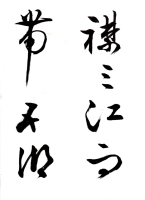 襟三江而
带五湖